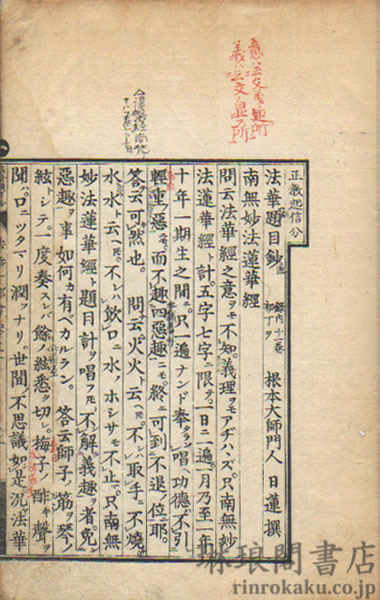 正教起信分
法華題目鈔 録内十一巻 根本大師門人 日蓮 撰
南無妙法蓮華經
問云法華經之意ヲモ不知義理ヲモアヂハヽズ只南無妙
法蓮華經ト計五字七字ニ限テ一日ニ一遍一月乃至一年
十年一期生之間ニ只一遍ナンド奉ラン唱功德不引
輕重惡ニ而不趣四惡趣ニモ終ニ可到不退位耶
答云可然也 問云火火ト云ヘ𪜈不レハ取手ニ不燒
水水ト云ヘ𪜈不レハ飲口ニ水ノホシサモ不止只南無
妙法蓮華經ト題目計ヲ唱フ𪜈不解義趣者免ン
惡趣ヲ事如何カ有ベカルラン 答云師子ノ筋ヲ琴ノ
絃トシテ一度奏スレバ餘ノ絃悉ク切レ梅子ノ酢キ聲ヲ
聞ハ口ニツタマリ潤フナリ世間不思議如是況法華
琳琅閣書店
rinrokaku.co.jp